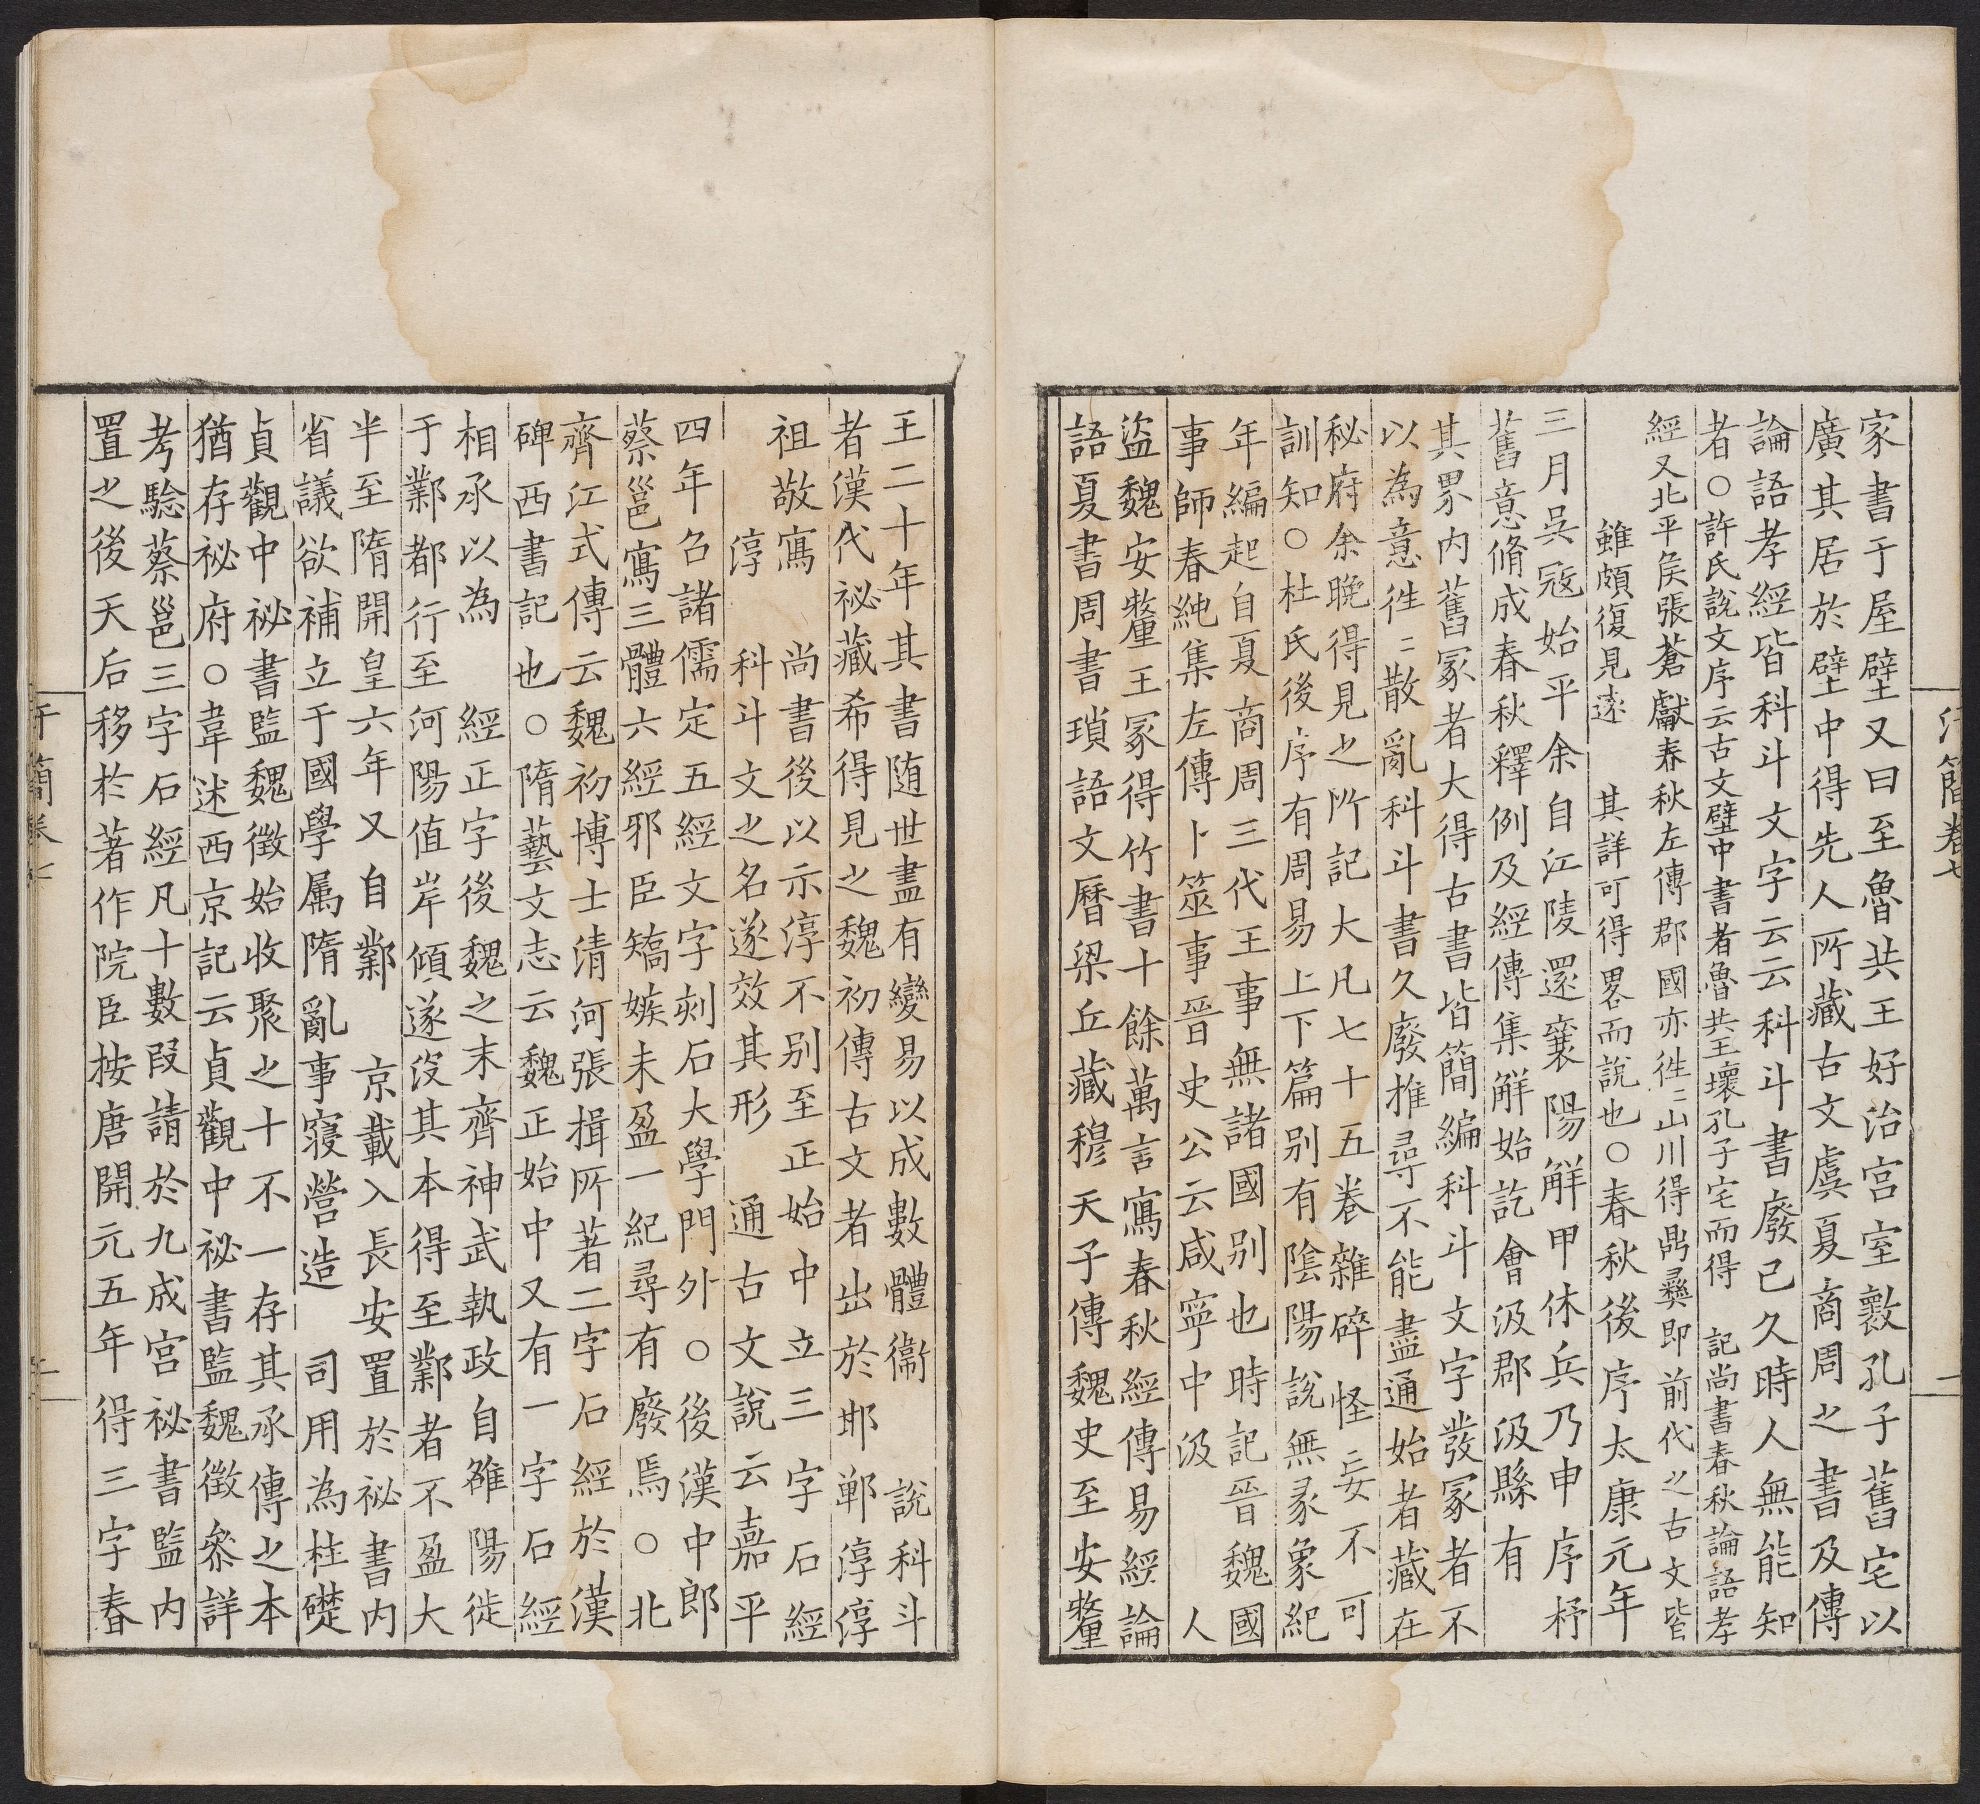 汗簡卷七
家書于屋壁又曰至魯共王好治宮室斁孔子舊宅以
廣其居於壁中得先人所藏古文虞夏商周之書及傳
論語孝經皆科斗文字云云科斗書廢已久時人無能知
者○許氏說文序云古文壁中書者魯共王壞孔子宅而得 記尚書春秋論語孝
經又北平矦張蒼獻春秋左傳郡國亦徃〻山川得鼎彝即前代之古文皆
雖頗復見逺 其詳可得畧而說也○春秋後序太康元年
三月吳寇始平余自江陵還襄陽觧甲休兵乃申序杼
舊意脩成春秋釋例及經傳集觧始訖會汲郡汲縣有
其界内舊冢者大得古書皆簡編科斗文字發冢者不
以為意徃〻散亂科斗書久廢推尋不能盡通始者藏在
秘府余晩得見之所記大凡七十五卷雜碎怪妄不可
訓知○杜氏後序有周易上下篇别有陰陽說無彖象紀
年編起自夏商周三代王事無諸國别也時記晉魏國
事師春純集左傳卜筮事晉史公云咸寧中汲 人
盜魏安釐王冢得竹書十餘萬言寫春秋經傳易經論
語夏書周書瑣語文曆梁丘藏穆天子傳魏史至安釐
王二十年其書隨世盡有變易以成數體衞 說科斗
者漢代祕藏希得見之魏初傳古文者出於邯鄲淳淳
祖敬寫 尚書後以示淳不别至正始中立三字石經
淳 科斗文之名遂效其形 通古文說云嘉平
四年召諸儒定五經文字刻石大學門外○後漢中郎
蔡邕寫三體六經邪臣矯嫉未盈一紀尋有廢焉○北
齊江式傳云魏初博士清河張揖所著二字石經於漢
碑西書記也○隋藝文志云魏正始中又有一字石經
相承以為 經正字後魏之末齊神武執政自雒陽徙
于鄴都行至河陽值岸傾遂沒其本得至鄴者不盈大
半至隋開皇六年又自鄴 京載入長安置於祕書内
省議欲補立于國學屬隋亂事寢營造 司用為柱礎
貞觀中祕書監魏徵始收聚之十不一存其承傳之本
猶存祕府○韋述西京記云貞觀中祕書監魏徵叅詳
考驗蔡邕三字石經凡十數段請於九成宮祕書監内
置之後天后移於著作院臣按唐開元五年得三字春
汗簡卷七